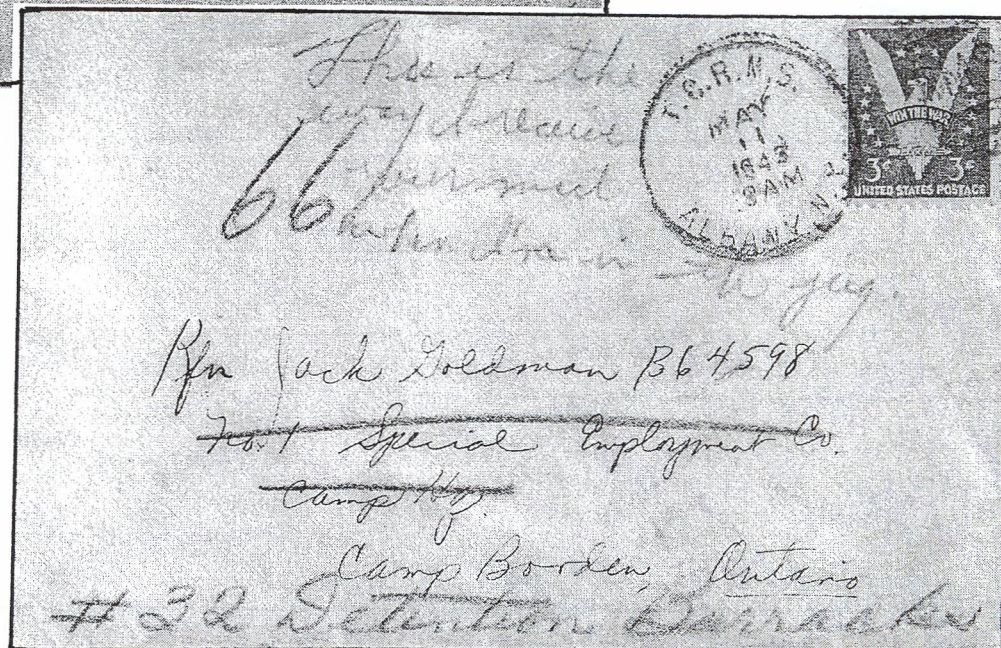 This is the
way I receive
your mail
66
when I'm in the jug.
T.&R.M.S.
MAY
11
1943
9AM
ALBANY, N.Y.
WIN THE WAR
3¢ 3¢
UNITED STATES POSTAGE
Rfn Jack Goldman B64598
No. 1 Special Employment Co.
Camp Hq.
Camp Borden, Ontario
#32 Detention Barracks